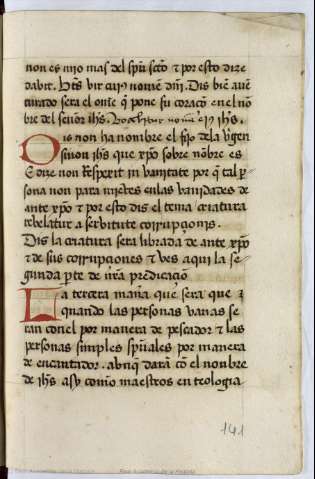 non es n̄ro mas del sp̄u sc̄to τ por esto dize
dabit. Bt̄s vir cui9 nomē dn̄i. Dis biē auē
turado sera el om̄e q̄ pone su coraçō en el nō
bre del señor ih̄s. Vocabitur nomē ei9 ih̄s.
Dios non ha nombre el fijo dela v̄gen
sinon ih̄s que xp̄o sobre nōbre es
E dize non respexit in vanitate por q̄ tal p̄r
sona non para mientes en las vanidades de
ante xp̄o τ por esto dis el tema criatura
rebelatur a servitute corrupçionis.
Dis la criatura sera librada de ante xp̄o
τ de sus corrupçiones τ ves aqui la se
gunda p̄te de n̄ra predicaçiō
La tercera maña que sera que
quando las personas vanas se
ran con el por manera de pescador τ las
personas simples sp̄uales por manera
de encantador. abnq̄ darā cō el nonbre
de ih̄s asy como maestros en teologia
141
Real Academia de la Historia